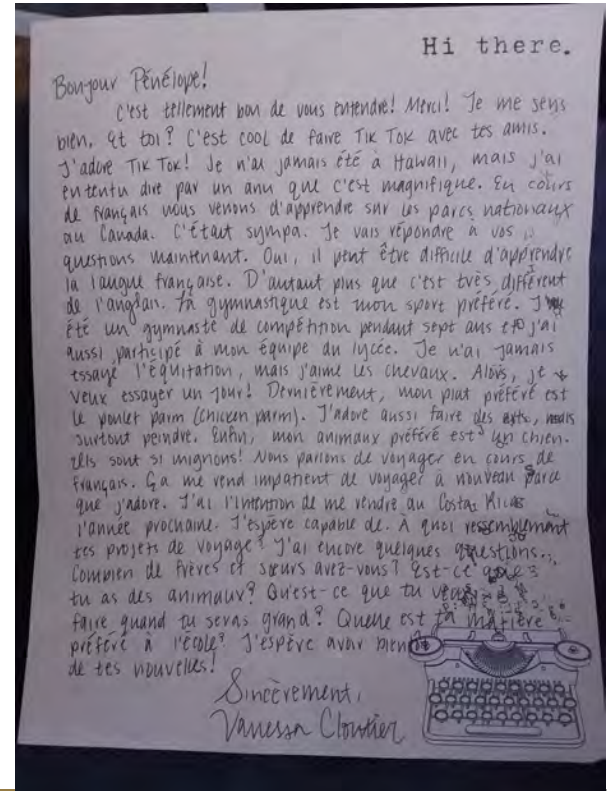 Hi there.
Bonjour Pénélope!
C'est tellement bon de vous entendre! Merci! Je me sens
bien, et toi? C'est cool de faire Tik Tok avec tes amis.
J'adore Tik Tok! Je n'ai jamais été à Hawaii, mais j'ai
entendu dire par un ami que c'est magnifique. En cours
de français nous venons d'apprendre sur les parcs nationaux
au Canada. C'était sympa. Je vais répondre à vos
questions maintenant. Oui, il peut être difficile d'apprendre
la langue française. D'autant plus que c'est très différent
de l'anglais. La gymnastique est mon sport préféré. J'ai
été un gymnaste de compétition pendant sept ans et j'ai
aussi participé à mon équipe du lycée. Je n'ai jamais
essayé l'équitation, mais j'aime les chevaux. Alors, je
veux essayer un jour! Dernièrement, mon plat préféré est
le poulet parm (chicken parm). J'adore aussi faire des arts, mais
surtout peindre. Enfin, mon animaux préféré est un chien.
Ils sont si mignons! Nous parlons de voyager en cours de
français. Ça me rend impatient de voyager à nouveau parce
que j'adore. J'ai l'intention de me rendre au Costa Rica
l'année prochaine. J'espère capable de. À quoi ressemblement
tes projets de voyage? J'ai encore quelques questions.
Combien de frères et sœurs avez-vous? Est-ce que
tu as des animaux? Qu'est-ce que tu veux
faire quand tu seras grand? Quelle est ta matière
préféré à l'école? J'espère avoir bien
de tes nouvelles!
Sincèrement,
Vanessa Cloutier